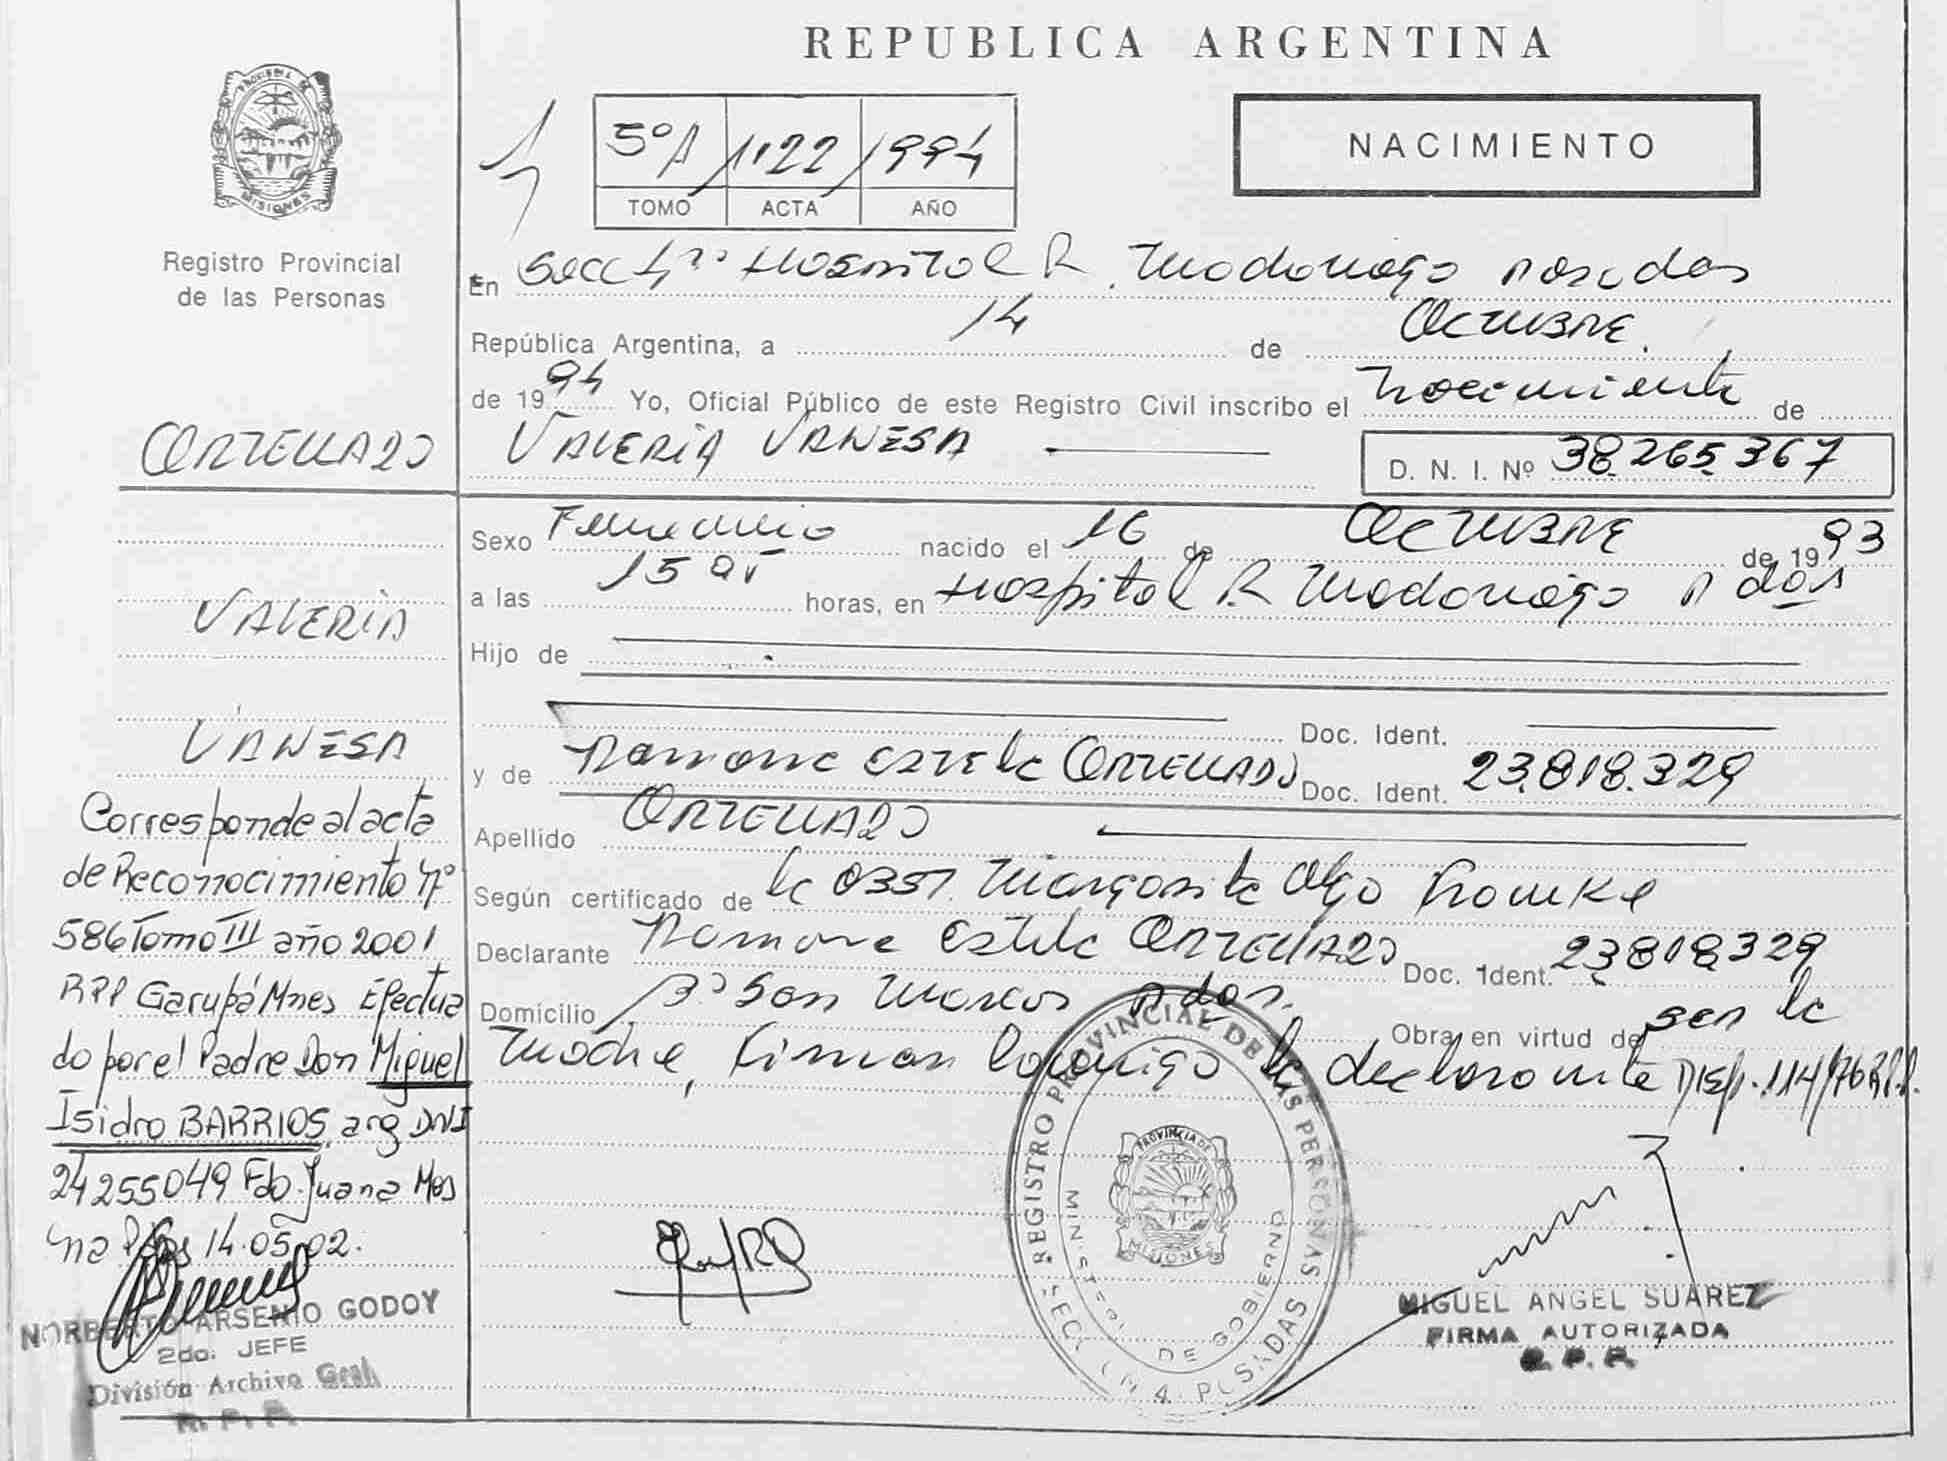 REPUBLICA ARGENTINA
PROVINCIA DE
MISIONES
Registro Provincial
de las Personas
5º A 1122 1994
TOMO ACTA AÑO
NACIMIENTO
En Secc 4ta Hospital R. Madariaga Posadas
República Argentina, a 14 de Octubre
de 1994 Yo, Oficial Público de este Registro Civil inscribo el Nacimiento de
VALERIA VANESA
D. N. I. Nº 38.265.367
Sexo Femenino nacido el 16 de Octubre de 1993
a las 15 horas, en Hospital R. Madariaga Pdas
Hijo de
Doc. Ident.
y de Ramona Estela ORTELLADO Doc. Ident. 23.818.329
Apellido ORTELLADO
Según certificado de la Obst. Margarita Olga
Declarante Ramona Estela ORTELLADO Doc. Ident. 23818329
Domicilio Bº San Marcos Pdas. Obra en virtud de ser la
Madre, Firman Conmigo la declarante Disp. 114/76 R.P.P.
ORTELLADO
VALERIA
VANESA
Corresponde al acta
de Reconocimiento Nº
586 Tomo III año 2001
RPP Garupá Mnes Efectua
do por el Padre Don Miguel
Isidro BARRIOS arg DNI
24255049 Fdo. Juana Mes
na Pdas 14.05.02.
NORBERTO ARSENIO GODOY
2do. JEFE
División Archivo Gral
R. P. P.
REGISTRO PROVINCIAL DE LAS PERSONAS
MINISTERIO DE GOBIERNO
PROVINCIA DE
MISIONES
SECCION 4 - POSADAS
MIGUEL ANGEL SUAREZ
FIRMA AUTORIZADA
R. P. P.